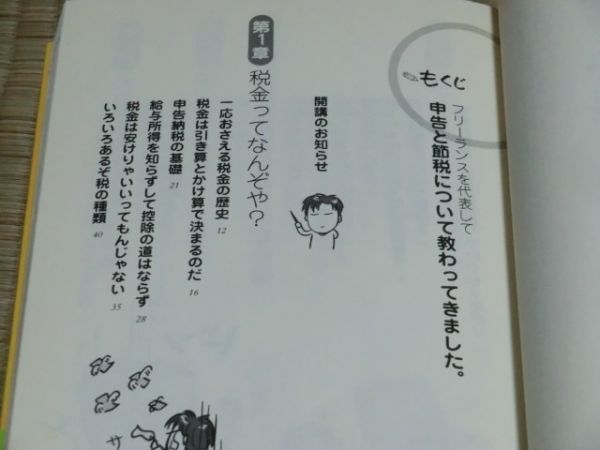 もくじ
フリーランスを代表して
申告と節税について教わってきました。
開講のお知らせ
第1章
税金ってなんぞや?
一応おさえる税金の歴史 12
税金は引き算とかけ算で決まるのだ 16
申告納税の基礎 21
給与所得を知らずして控除の道はならず 28
税金は安けりゃいいってもんじゃない 35
いろいろあるぞ税の種類 40
サ